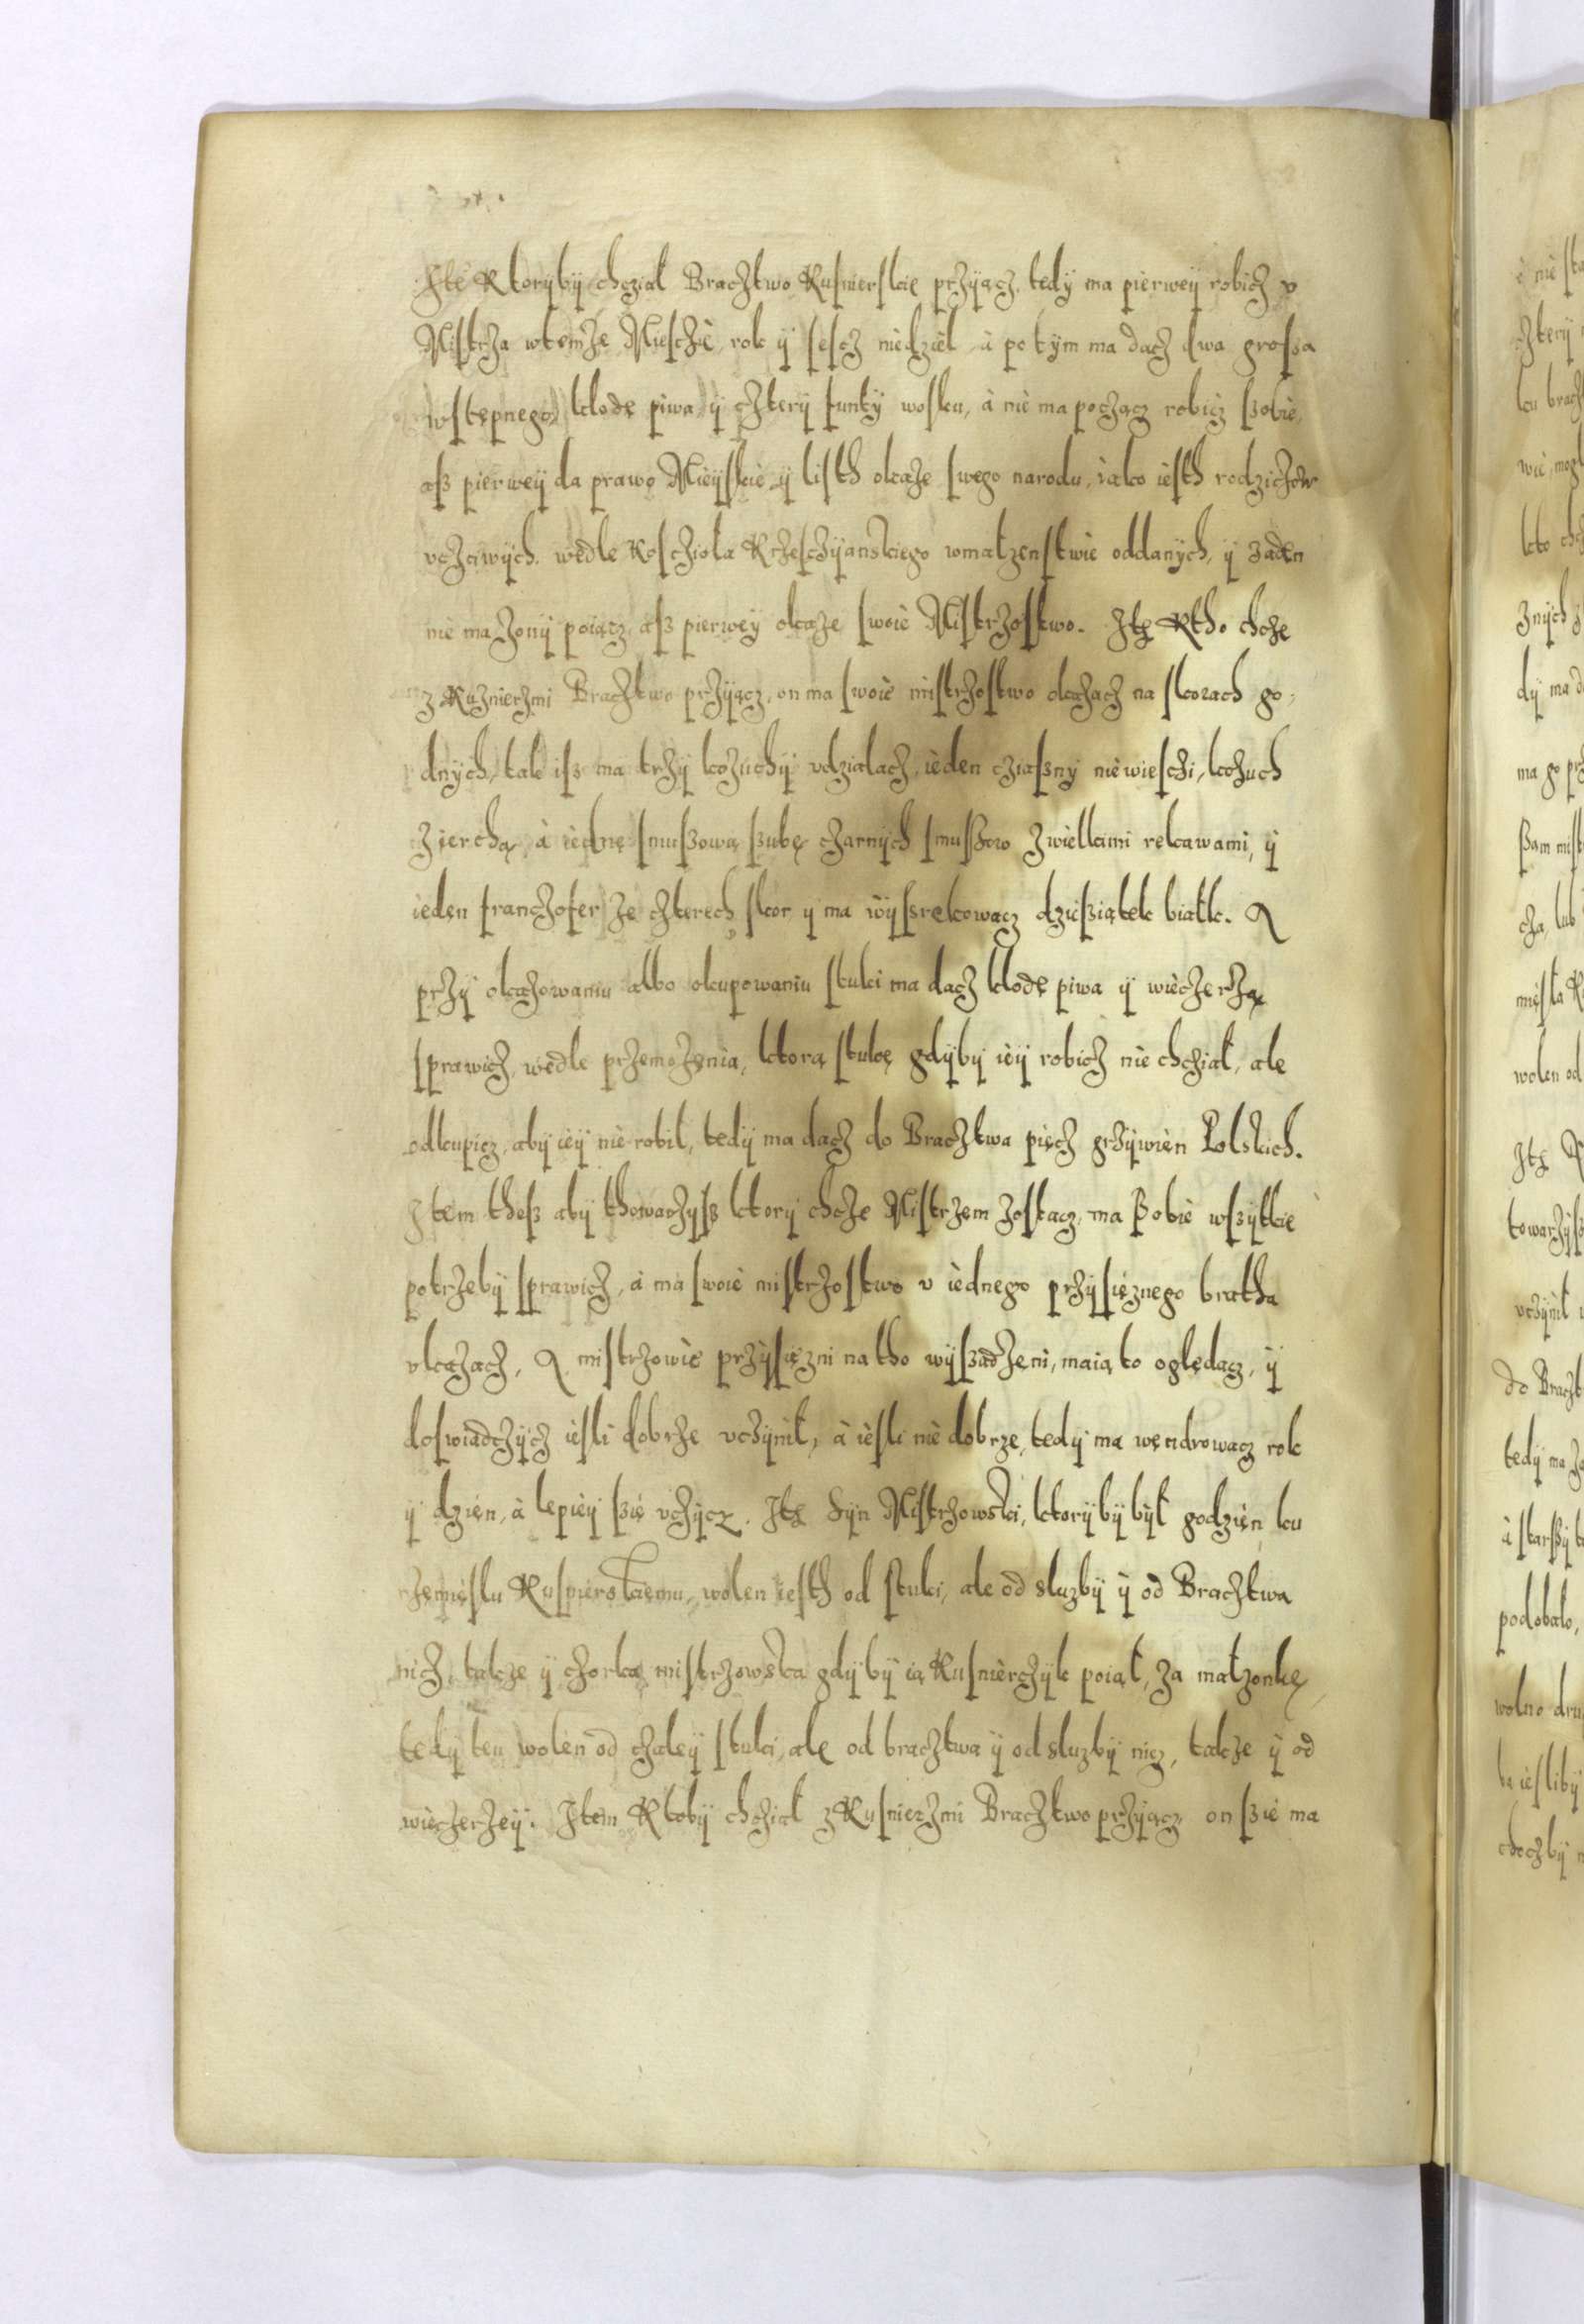 Itē Ktorÿbÿ chcział Braċztwo Kusnierskie przÿącz, tedÿ ma pierweÿ robicz v
Mistrza wtemze Miesczie, rok ÿ sescz niedziel, à potÿm ma dacz dwa grossa
wstępnego, kłodę piwa, ÿ czterÿ funtÿ wosku, à nie ma począc robicz szobie,
asz pierweÿ da prawo Mieÿskie ÿ listh okaze swego narodu, iako iesth rodziczow
vczciwÿch, wedle Kosczioła Krzesczÿanskiego wmałzenstwie oddanÿch, ÿ zaden
nie ma zonÿ poiącz, asz pierweÿ okaze swoie Mistrzostwo. Itē Ktho chcze
z Kuznierzmi Bracztwo przÿącz, on ma swoie mistrzostwo okazacz na skorach go-
dnÿch, tak isz ma trzÿ kozuchÿ vdziałacz, ieden cziasnÿ niewiesczi, kozuch
zierchą, à iednę smuszową szubę czarnÿch smuszow zwielkimi rekawami, ÿ
ieden francżofer ze czterech skor ÿ ma wÿsrękowacz dziesziątek białk. A
przÿ okazowaniu albo okupowaniu stuki ma dacz kłodę piwa ÿ wieczerzą
sprawicz, wedle przemozenia, ktorą stukę gdÿbÿ ieÿ robicz nie chcział, ale
odkupicz, abÿ ieÿ nie robil, tedÿ ma dacz do Bracztwa pięcz grzÿwien Polskich.
Item thesz abÿ thowarzÿsz ktorÿ chcze Mistrzem zostacz, ma szobie wszÿtkie
potrzebÿ sprawicz, à ma swoie mistrzostwo v iednego przÿsięznego bratha
vkazacz, A mistrzowie przÿsięzni natho wÿszadzeni, maią to oględacz, ÿ
doswiadczÿcz iesli dobrze vczÿnił, à iesli nie dobrze, tedÿ ma wędrowacz rok
ÿ dzien, à lepieÿ szie vczÿcz. Itē Sÿn Mistrzowski, ktorÿbÿ bÿł godzien ku
rzemiesłu Kusnierskiemu, wolen iesth od stuki, ale od sluzbÿ ÿ od Bracztwa
nicz, takze ÿ czorka mistrzowska gdÿbÿ ią Kusnierczÿk poiął, za małzonkę,
tedÿ ten wolen od czaleÿ stuki, ale od bracztwa ÿ od sluzbÿ nicz, takze ÿ od
wieczerzeÿ. Item Ktobÿ chcział z Kusnierzmi Bracztwo przÿącz, on szie ma